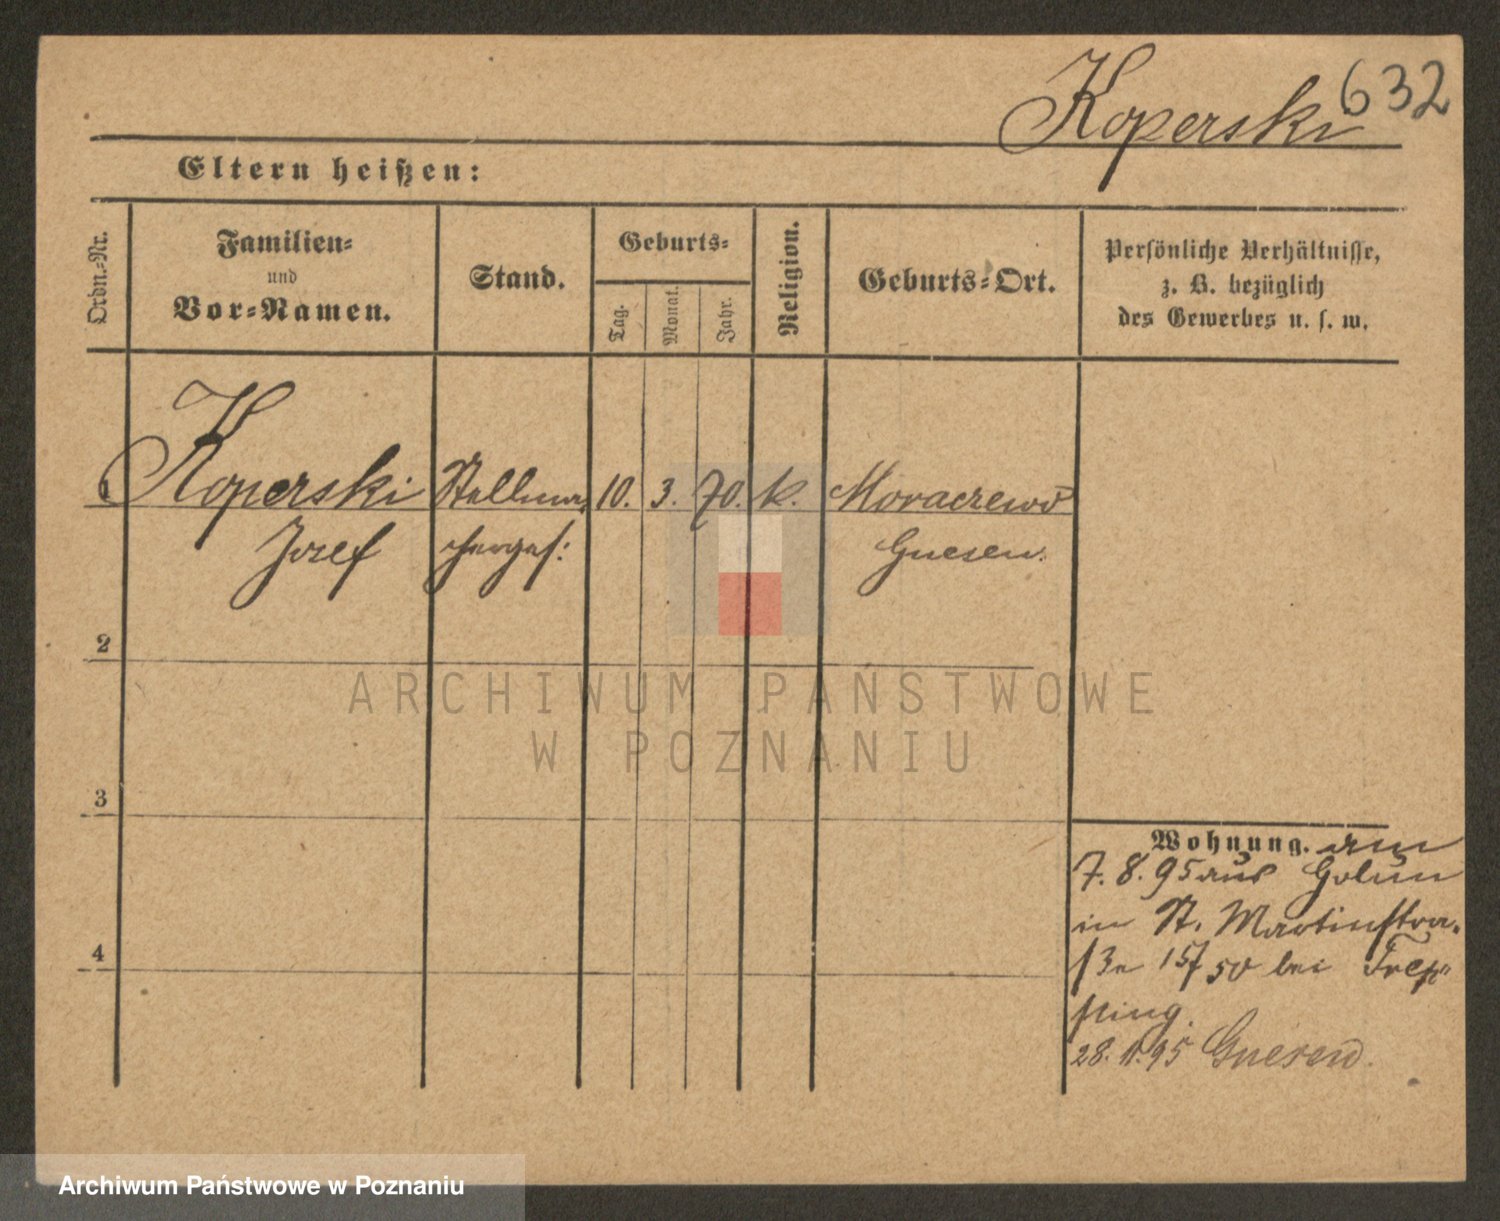 632
Koperski
Eltern heißen:
Ordn.-Nr.
Familien-
und
Vor-Namen.
Stand.
Geburts-
Tag.
Monat.
Jahr.
Religion.
Geburts-Ort.
Persönliche Verhältnisse,
z. B. bezüglich
des Gewerbes u. s. w.
1 Koperski Stellma- 10. 3. 70. k. Moraczewo
Josef cherges: Gnesen.
2
3
4
Wohnung. am
7. 8. 95 aus Golun
in St. Martinstra-
ße 50 bei
28. 11. 95 Gnesen.
ARCHIWUM PAŃSTWOWE
W POZNANIU
Archiwum Państwowe w Poznaniu